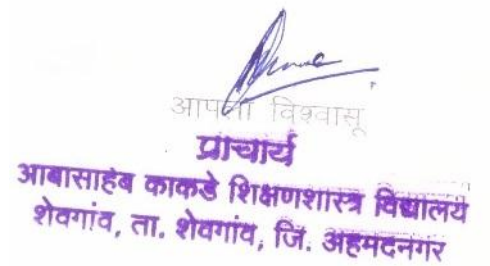 आपला विश्वासू
प्राचार्य
आबासाहेब काकडे शिक्षणशास्त्र विद्यालय
शेवगांव, ता. शेवगांव, जि. अहमदनगर